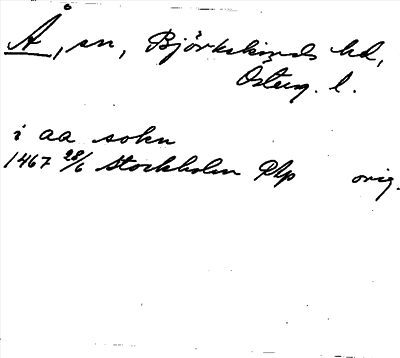 Å, sn, Björkekinds hd,
Österg. l.
i aa sokn
1467 28/6 Stockholm Php orig.